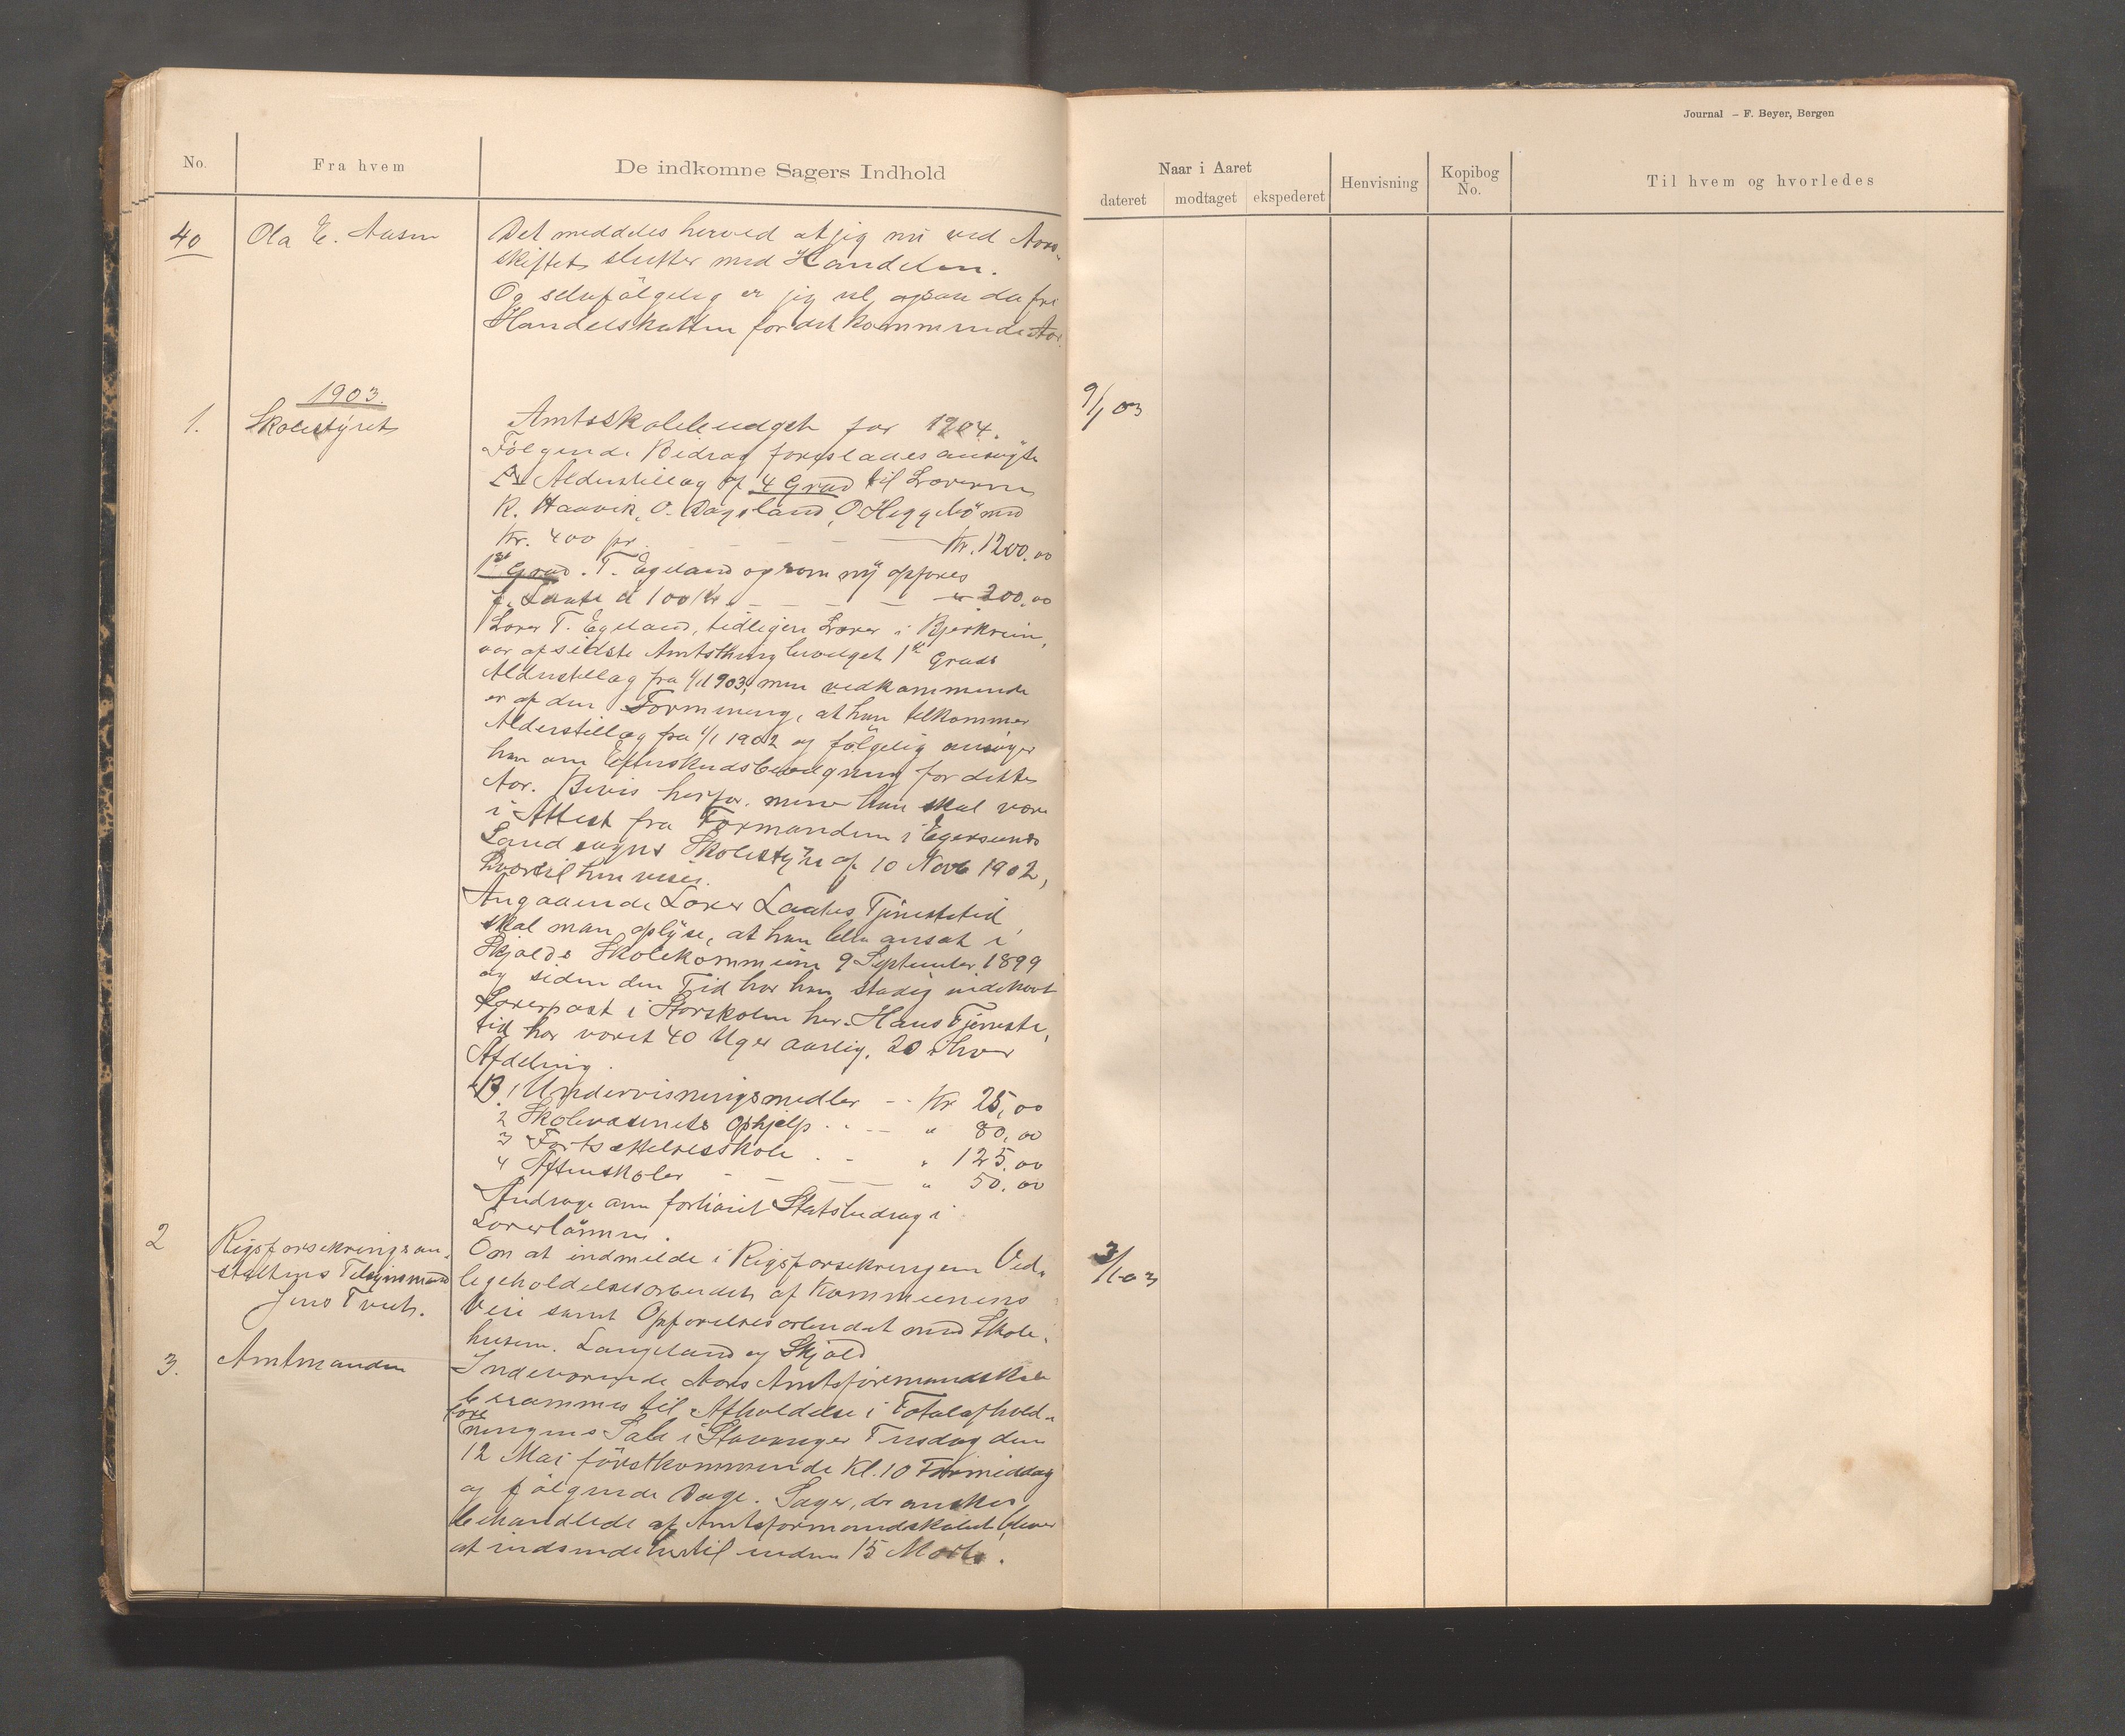 Journal – F. Beyer, Bergen
No.
Fra hvem
De indkomne Sagers Indhold
Naar i Aaret
dateret
modtaget
ekspederet
Henvisning
Kopibog
No.
Til hvem og hvorledes
40
Ola E. Aasen
Det meddeles herved at jeg nu ved Aars-
skiftet slutter med Handelen.
Og selvfölgelig er jeg vel ogsaa da fri
Handelskatten for det kommende Aar.
1903.
1.
Skolestyret
9/1 03
Amtsskolebudget for 1904.
Fölgende Bidrag foreslaaes ansögt
A Alderstillæg af 4 Grad til Lærerne
K. Haavik, O. Dagsland, O Heggebö med
Kr. 400 pr. – – – – Kr. 1200.00
1ste Grad. T. Egeland og som ny opföres
f. Laate à 100 Kr. – – – – 200.00
Lærer T. Egeland, tidligere Lærer i Bjerkreim,
var af sidste Amtsthing bevilget 1ste Grads
Alderstillæg fra 1/1 1903, men vedkommende
er af den Formening, at han tilkommer
Alderstillæg fra 1/1 1902 og fölgelig ansöger
han om Efterskudsbevilgning for dette
Aar. Bevis herfor mener han skal være
i Attest fra Formanden i Egersunds
Landsogns Skolestyre af 10 Novb 1902,
hvortil henvises.
Angaaende Lærer Laates Tjenestetid
skal man oplyse, at han blev ansat i
Skjolds Skolekommune 9 September 1899
og siden den Tid har han stadig indehavt
Lærerpost i Storskolen her. Hans Tjeneste-
tid har været 40 Uger aarlig, 20 i hver
Afdeling.
B. 1 Undervisningsmidler – – Kr 25,00
2 Skolevæsenets Ophjælp . . – – " 80,00
3 Fortsættelsesskole . – " 125.00
4 Aftenskoler – – – " 50.00
Andrage om forhöiet Statsbidrag i
Lærerlönnen.
2
Rigsforsekringsan-
staltens Tilsynsmand
Jens Tveit.
3/1 03
Om at indmelde i Rigsforsekringen Ved-
ligeholdelsesarbeidet af Kommunens
Veie samt Opförelsesarbeidet med Skole-
husene. Langeland og Skjold
3.
Amtmanden
Indeværende Aars Amtsformandskab
berammes til Afholdelse i Totalafhold-
före
ningens Sale i Stavanger Tirsdag den
12 Mai förstkommende Kl. 10 Formiddag
og fölgende Dage. Sager, der önskes
behandlede af Amtsformandskabet bliver
at indsende hertil inden 15 Marts.